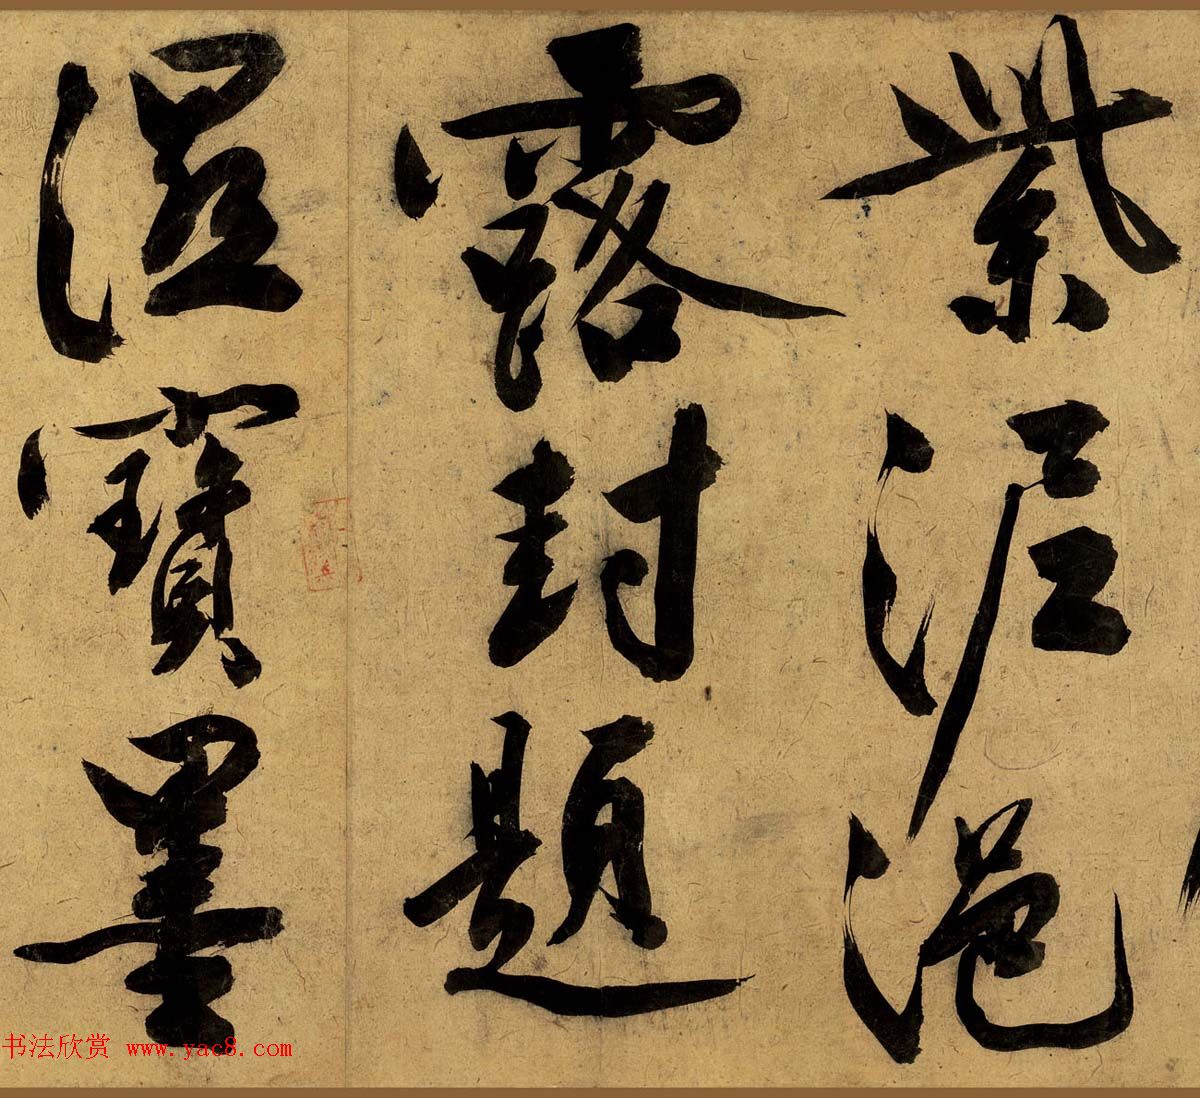 紫泥浥
露封題
濕寶墨
书法欣赏 www.yac8.com